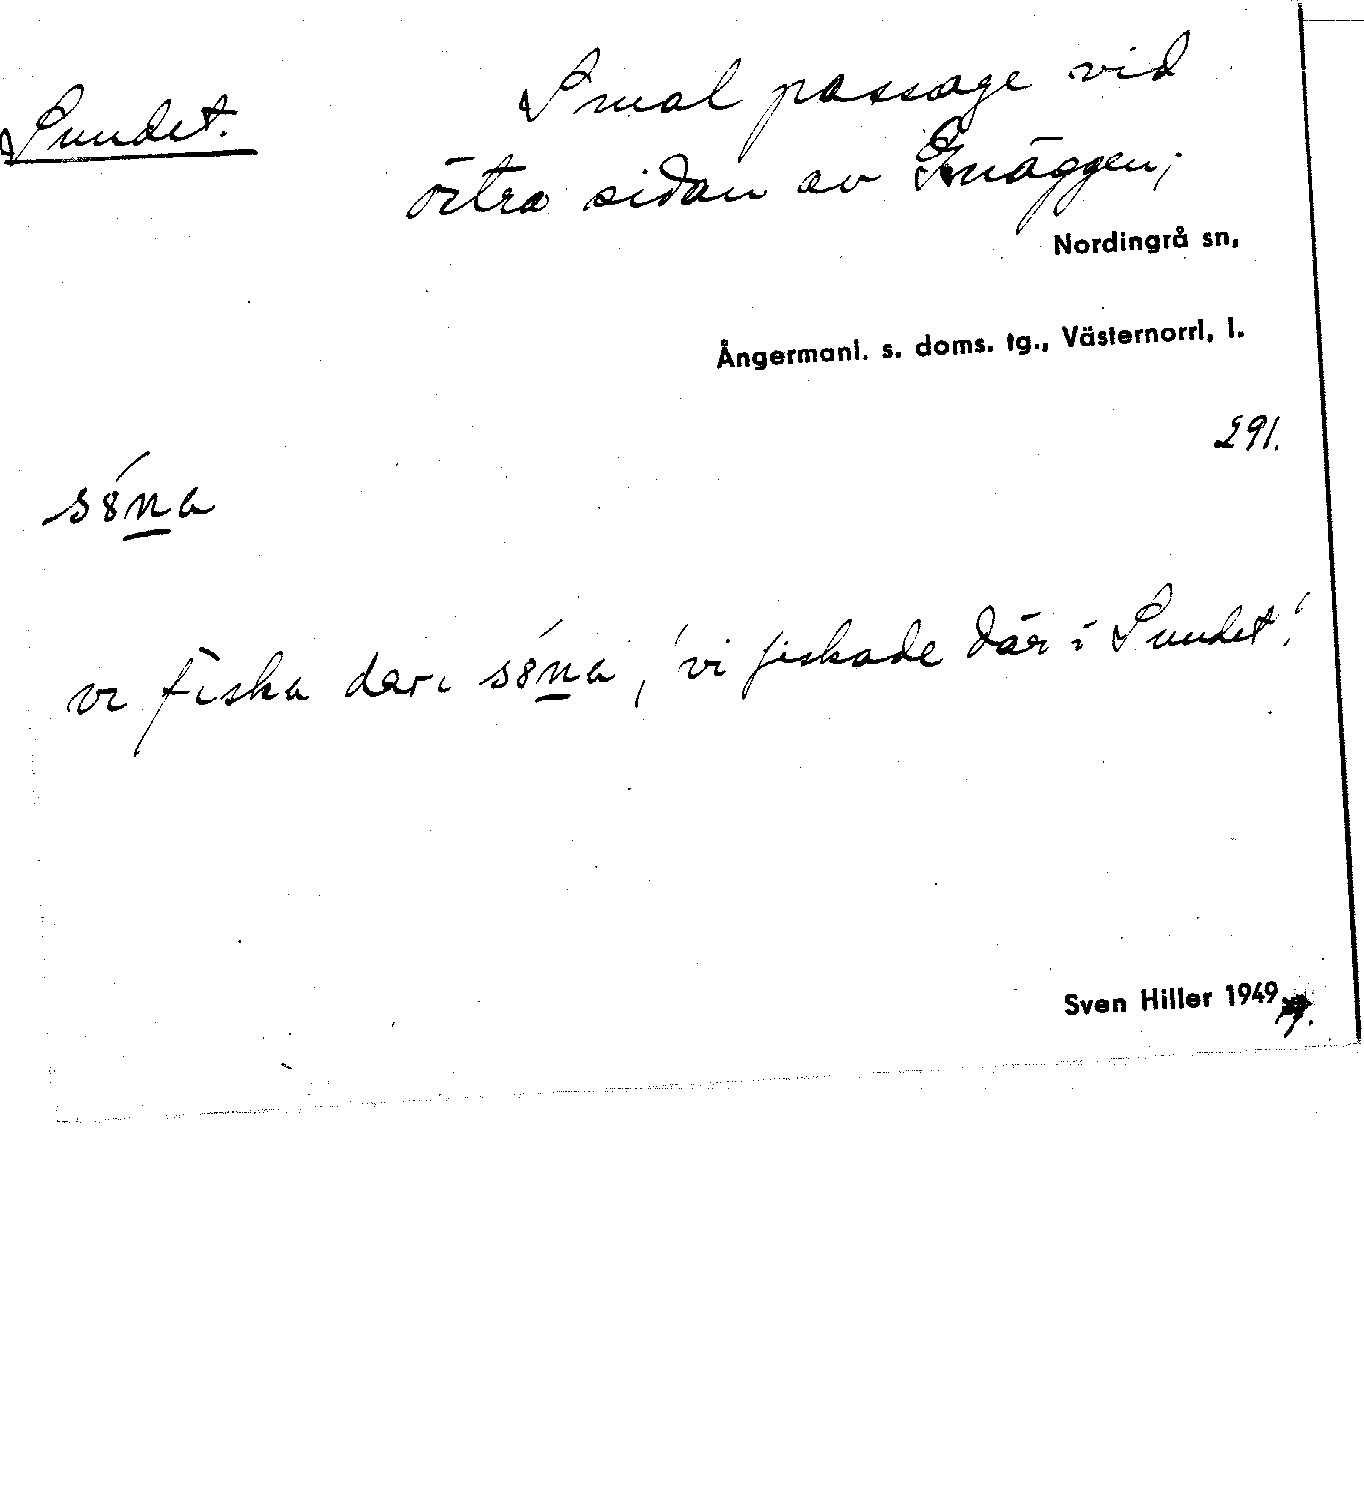 Sundet.
Smal passage vid
östra sidan av Gnäggen;
Nordingrå sn,
Ångermanl. s. doms. tg., Västernorrl, l.
291.
s8́n̲a
vı fiska der ı s8́n̲a, 'vi fiskade där i Sundet'.
Sven Hiller 1949